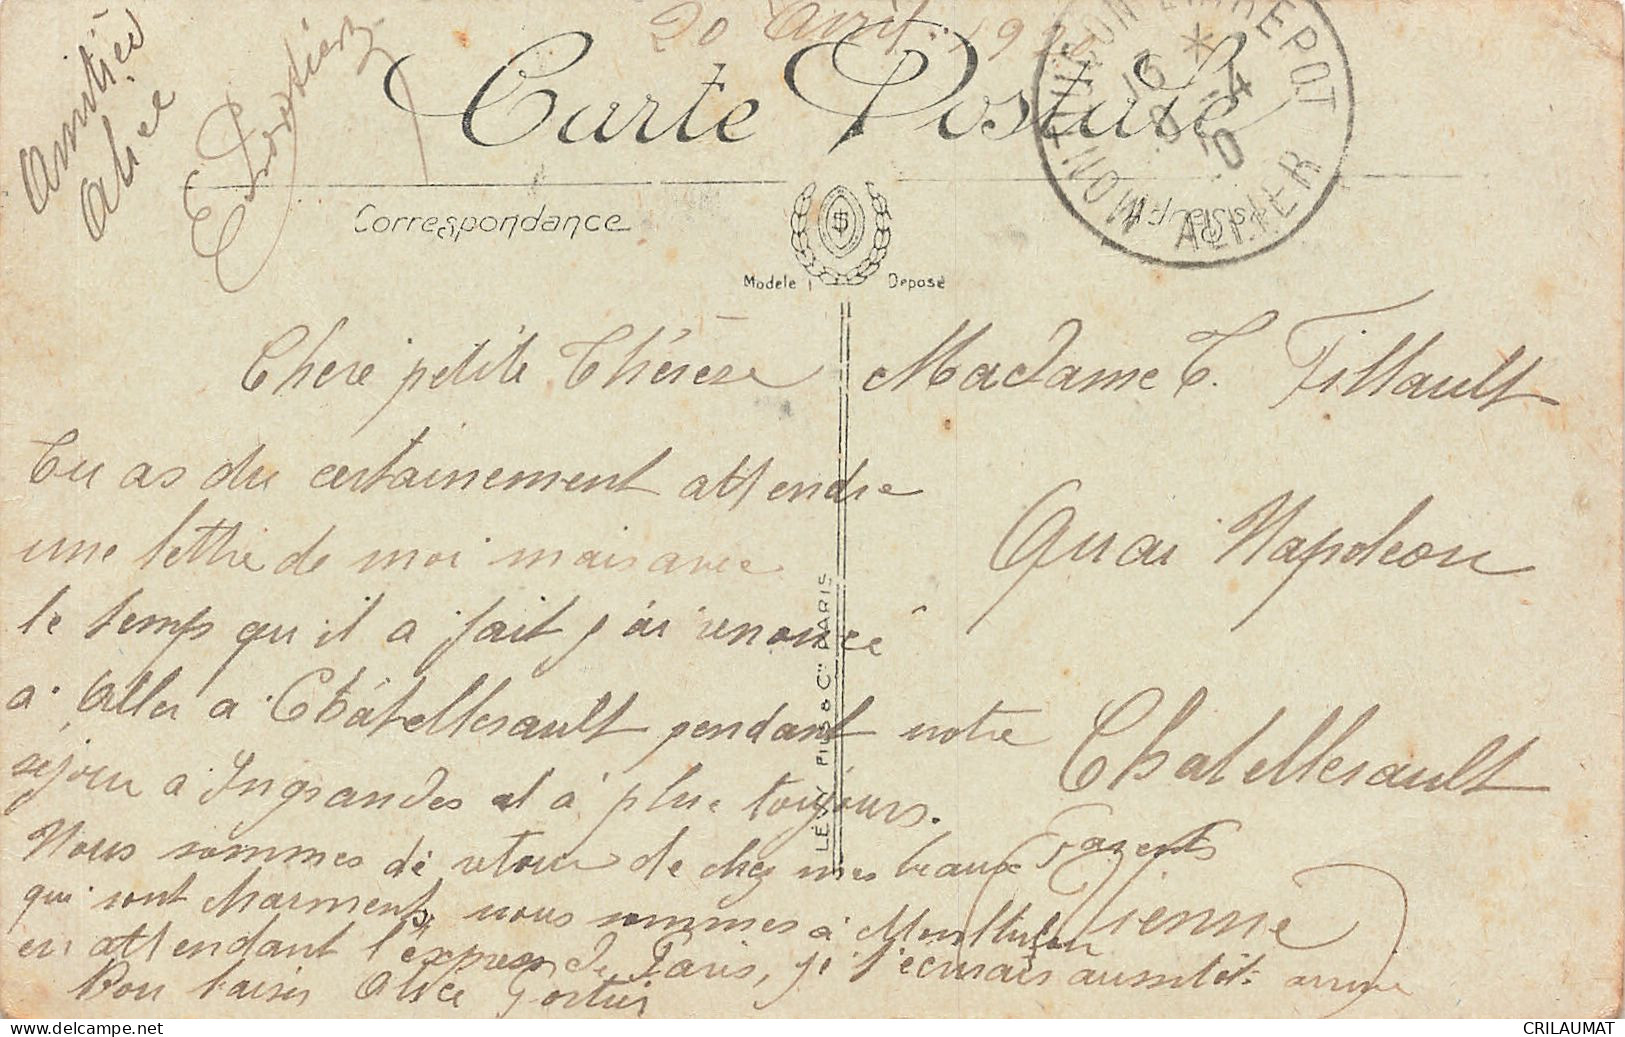 20 Avril 19
Amitiés
Alice
Carte Postale
MONTLUÇON ENTREPOT
ALLIER
Correspondance
Adresse
Modèle Déposé
Chère petite Thérèse
Tu as du certainement attendre
une lettre de moi mais avec
le temps qu'il a fait j'ai renoncé
à Aller à Châtellerault pendant notre
séjour à Ingrandes et à plus toujours.
Nous sommes de retour de chez mes beaux Parents
qui sont charmants, nous sommes à Montluçon
en attendant l'express de Paris, je t'écrirais aussitôt arrivée
Bon baiser Alice
Madame T. Tillault
Quai Napoléon
Chatellerault
(Vienne)
LÉVY FILS & Cie PARIS
CRILAUMAT